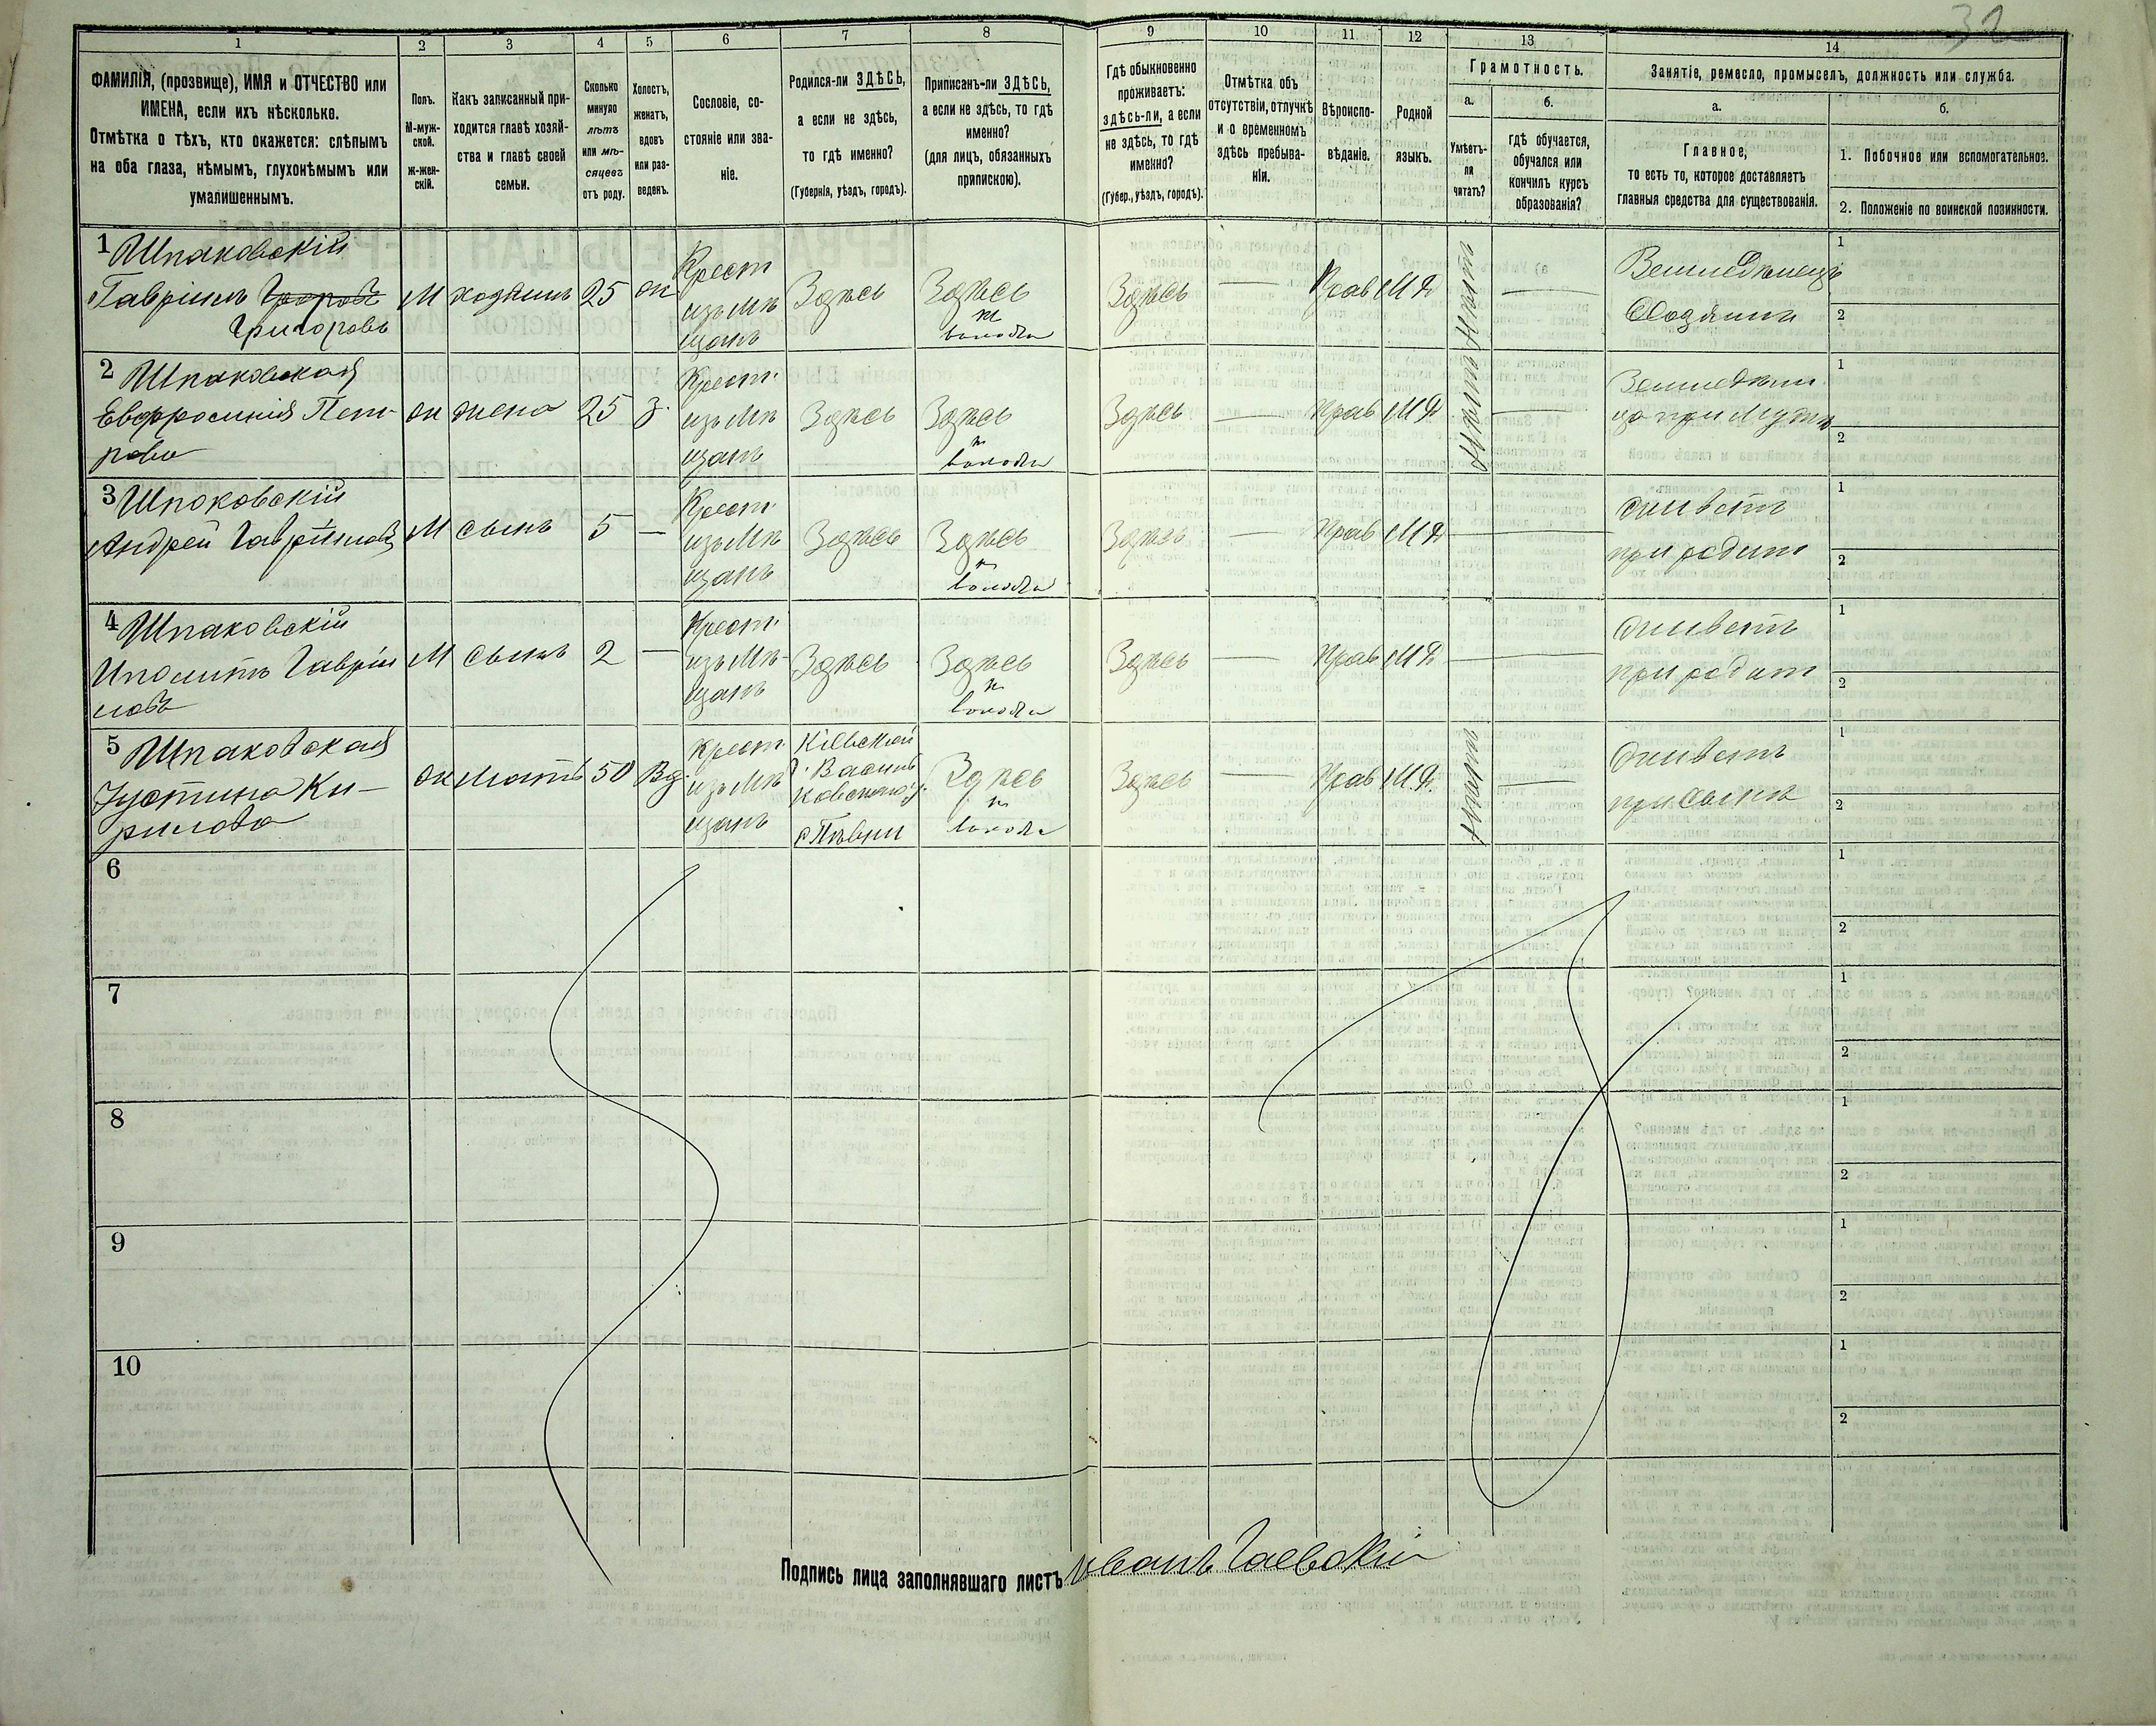 32
1
2
3
4
5
6
7
8
9
10
11
12
13
14
ФАМИЛІЯ, (прозвище), ИМЯ и ОТЧЕСТВО или
ИМЕНА, если ихъ нѣсколько.
Отмѣтка о тѣхъ, кто окажется: слѣпымъ
на оба глаза, нѣмымъ, глухонѣмымъ или
умалишеннымъ.
Полъ.
М-муж-
ской.
ж-жен-
скій.
Какъ записанный при-
ходится главѣ хозяй-
ства и главѣ своей
семьи.
Сколько
минуло
лѣтъ
или мѣ-
сяцевъ
отъ роду.
Холостъ,
женатъ,
вдовъ
или раз-
веденъ.
Сословіе, со-
стояніе или зва-
ніе.
Родился-ли ЗДѢСЬ,
а если не здѣсь,
то гдѣ именно?
(Губернія, уѣздъ, городъ).
Приписанъ-ли ЗДѢСЬ,
а если не здѣсь, то гдѣ
именно?
(для лицъ, обязанныхъ
припискою).
Гдѣ обыкновенно
проживаетъ:
здѣсь-ли, а если
не здѣсь, то гдѣ
именно?
(Губер., уѣздъ, городъ).
Отмѣтка объ
отсутствіи, отлучкѣ
и о временномъ
здѣсь пребыва-
ніи.
Вѣроиспо-
вѣданіе.
Родной
языкъ.
Грамотность.
а.
Умѣетъ-
ли
читать?
б.
гдѣ обучается,
обучался или
кончилъ курсъ
образованія?
Занятіе, ремесло, промыселъ, должность или служба.
а.
Главное,
то есть то, которое доставляетъ
главныя средства для существованія.
б.
1. Побочное или вспомогательное.
2. Положеніе по воинской повинности.
1 Шпаковскій
Гавріилъ
Григоровъ
М хозяинъ 25 ж
Крест
изъ мѣ
щанъ
Здѣсь
Здѣсь
Здѣсь
— Прав М.Р. Нѣтъ —
Земледѣлецъ
Хозяинъ
1
2
2 Шпаковская
Евфросинія Пет-
рова
ж жена 25 з.
Крест.
изъ мѣ
щанъ
Здѣсь
Здѣсь
Здѣсь
— Прав М.Р. Нѣтъ —
Земледѣли
ца при мужѣ
1
2
3 Шпаковскій
Андрей Гавріиловъ
М сынъ 5 —
Крест.
изъ мѣ
щанъ
Здѣсь
Здѣсь
Здѣсь
— Прав М.Р. —
живетъ
при родит
1
2
4 Шпаковскій
Иполитъ Гаврiи
ловъ
М сынъ 2 —
Крест.
изъ мѣ-
щанъ
Здѣсь
Здѣсь
Здѣсь
— Прав М.Р. —
живетъ
при родит
1
2
5 Шпаковская
Іустина Ки-
рилова
ж мать 50 Вд.
Крест.
изъ мѣ
щанъ
Кіевской
г. Василь
ковскаго у.
Здѣсь
Здѣсь
— Прав М.Р. Нѣтъ —
живетъ
при сынѣ
1
2
6
1
2
7
1
2
8
1
2
9
1
2
10
1
2
Подпись лица заполнявшаго листъ Иванъ Гаевскій